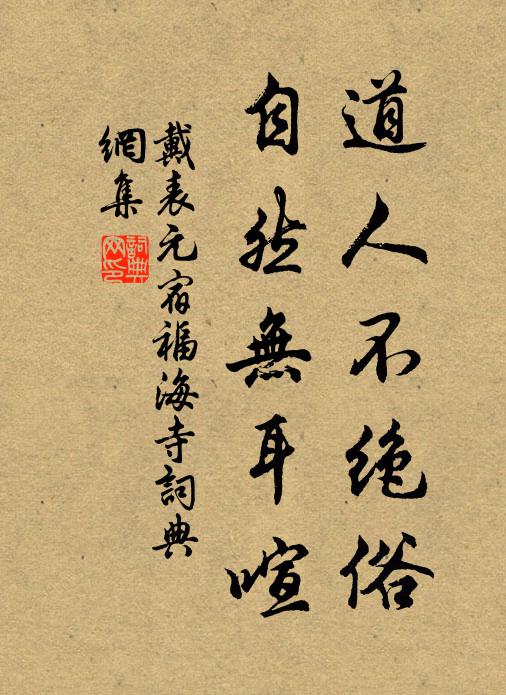 道人不绝俗
自然無耳喧
戴表元宿福海寺詞典
網集
詞典
网印